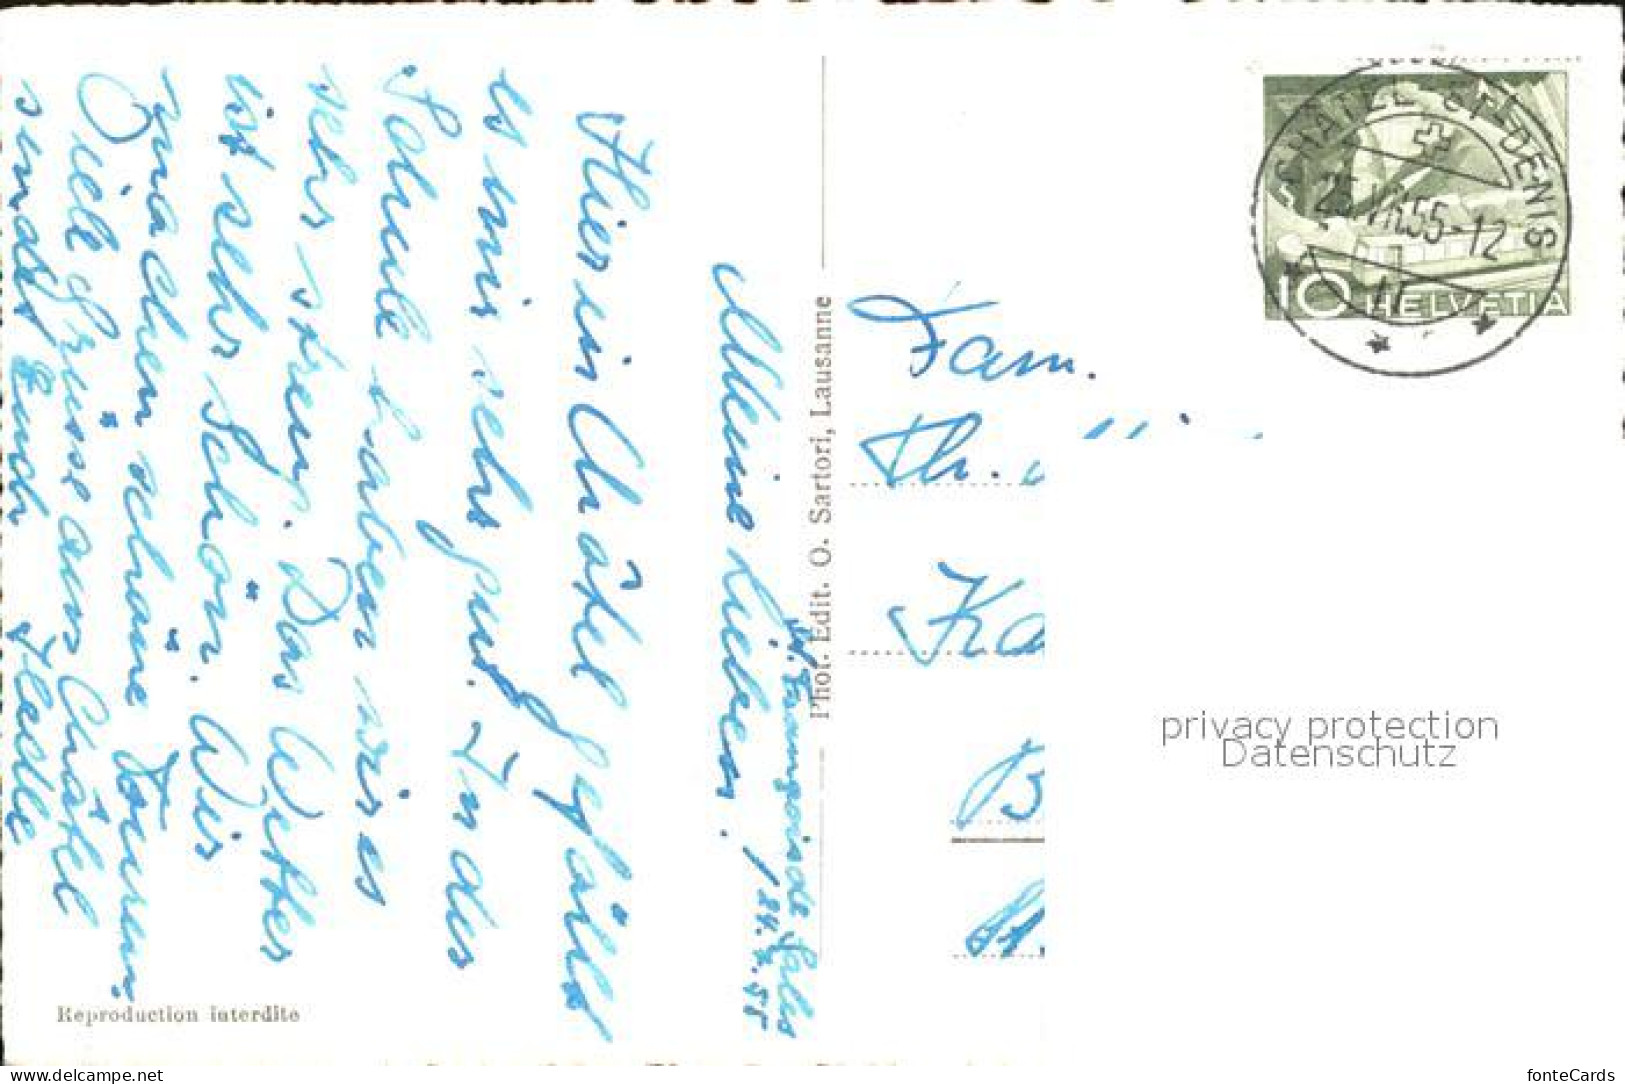 St. Françoise de Sales
24.7.55
Meine Lieben!
Hier in Châtel gefällt
es mir sehr gut. In der
Schule haben wir es
sehr streng. Das Wetter
ist sehr schön. Wir
machen schöne Touren.
Viele Grüsse aus Châtel
sendet Euch Hedle
Reproduction interdite
Phot. Edit. O. Sartori, Lausanne
CHATEL-ST-DENIS
25.VII.55-12
10 HELVETIA
Fam.
Th.
privacy protection
Datenschutz
www.delcampe.net
fonteCards